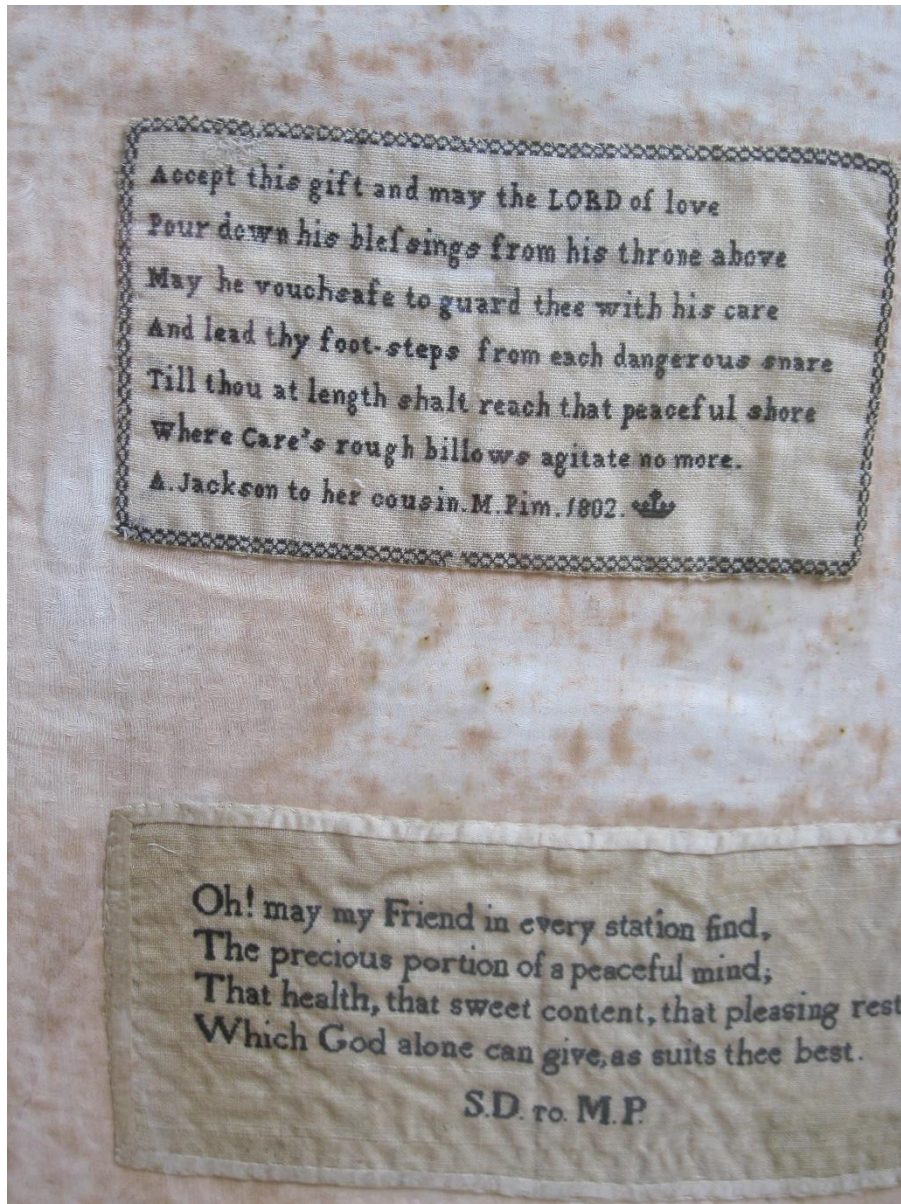 Accept this gift and may the LORD of love
Pour down his bleſsings from his throne above
May he vouchsafe to guard thee with his care
And lead thy foot-steps from each dangerous snare
Till thou at length shalt reach that peaceful shore
Where Care's rough billows agitate no more.
A.Jackson to her cousin.M.Pim.1802.
Oh! may my Friend in every station find,
The precious portion of a peaceful mind;
That health, that sweet content, that pleasing rest
Which God alone can give, as suits thee best.
S.D. to. M.P.